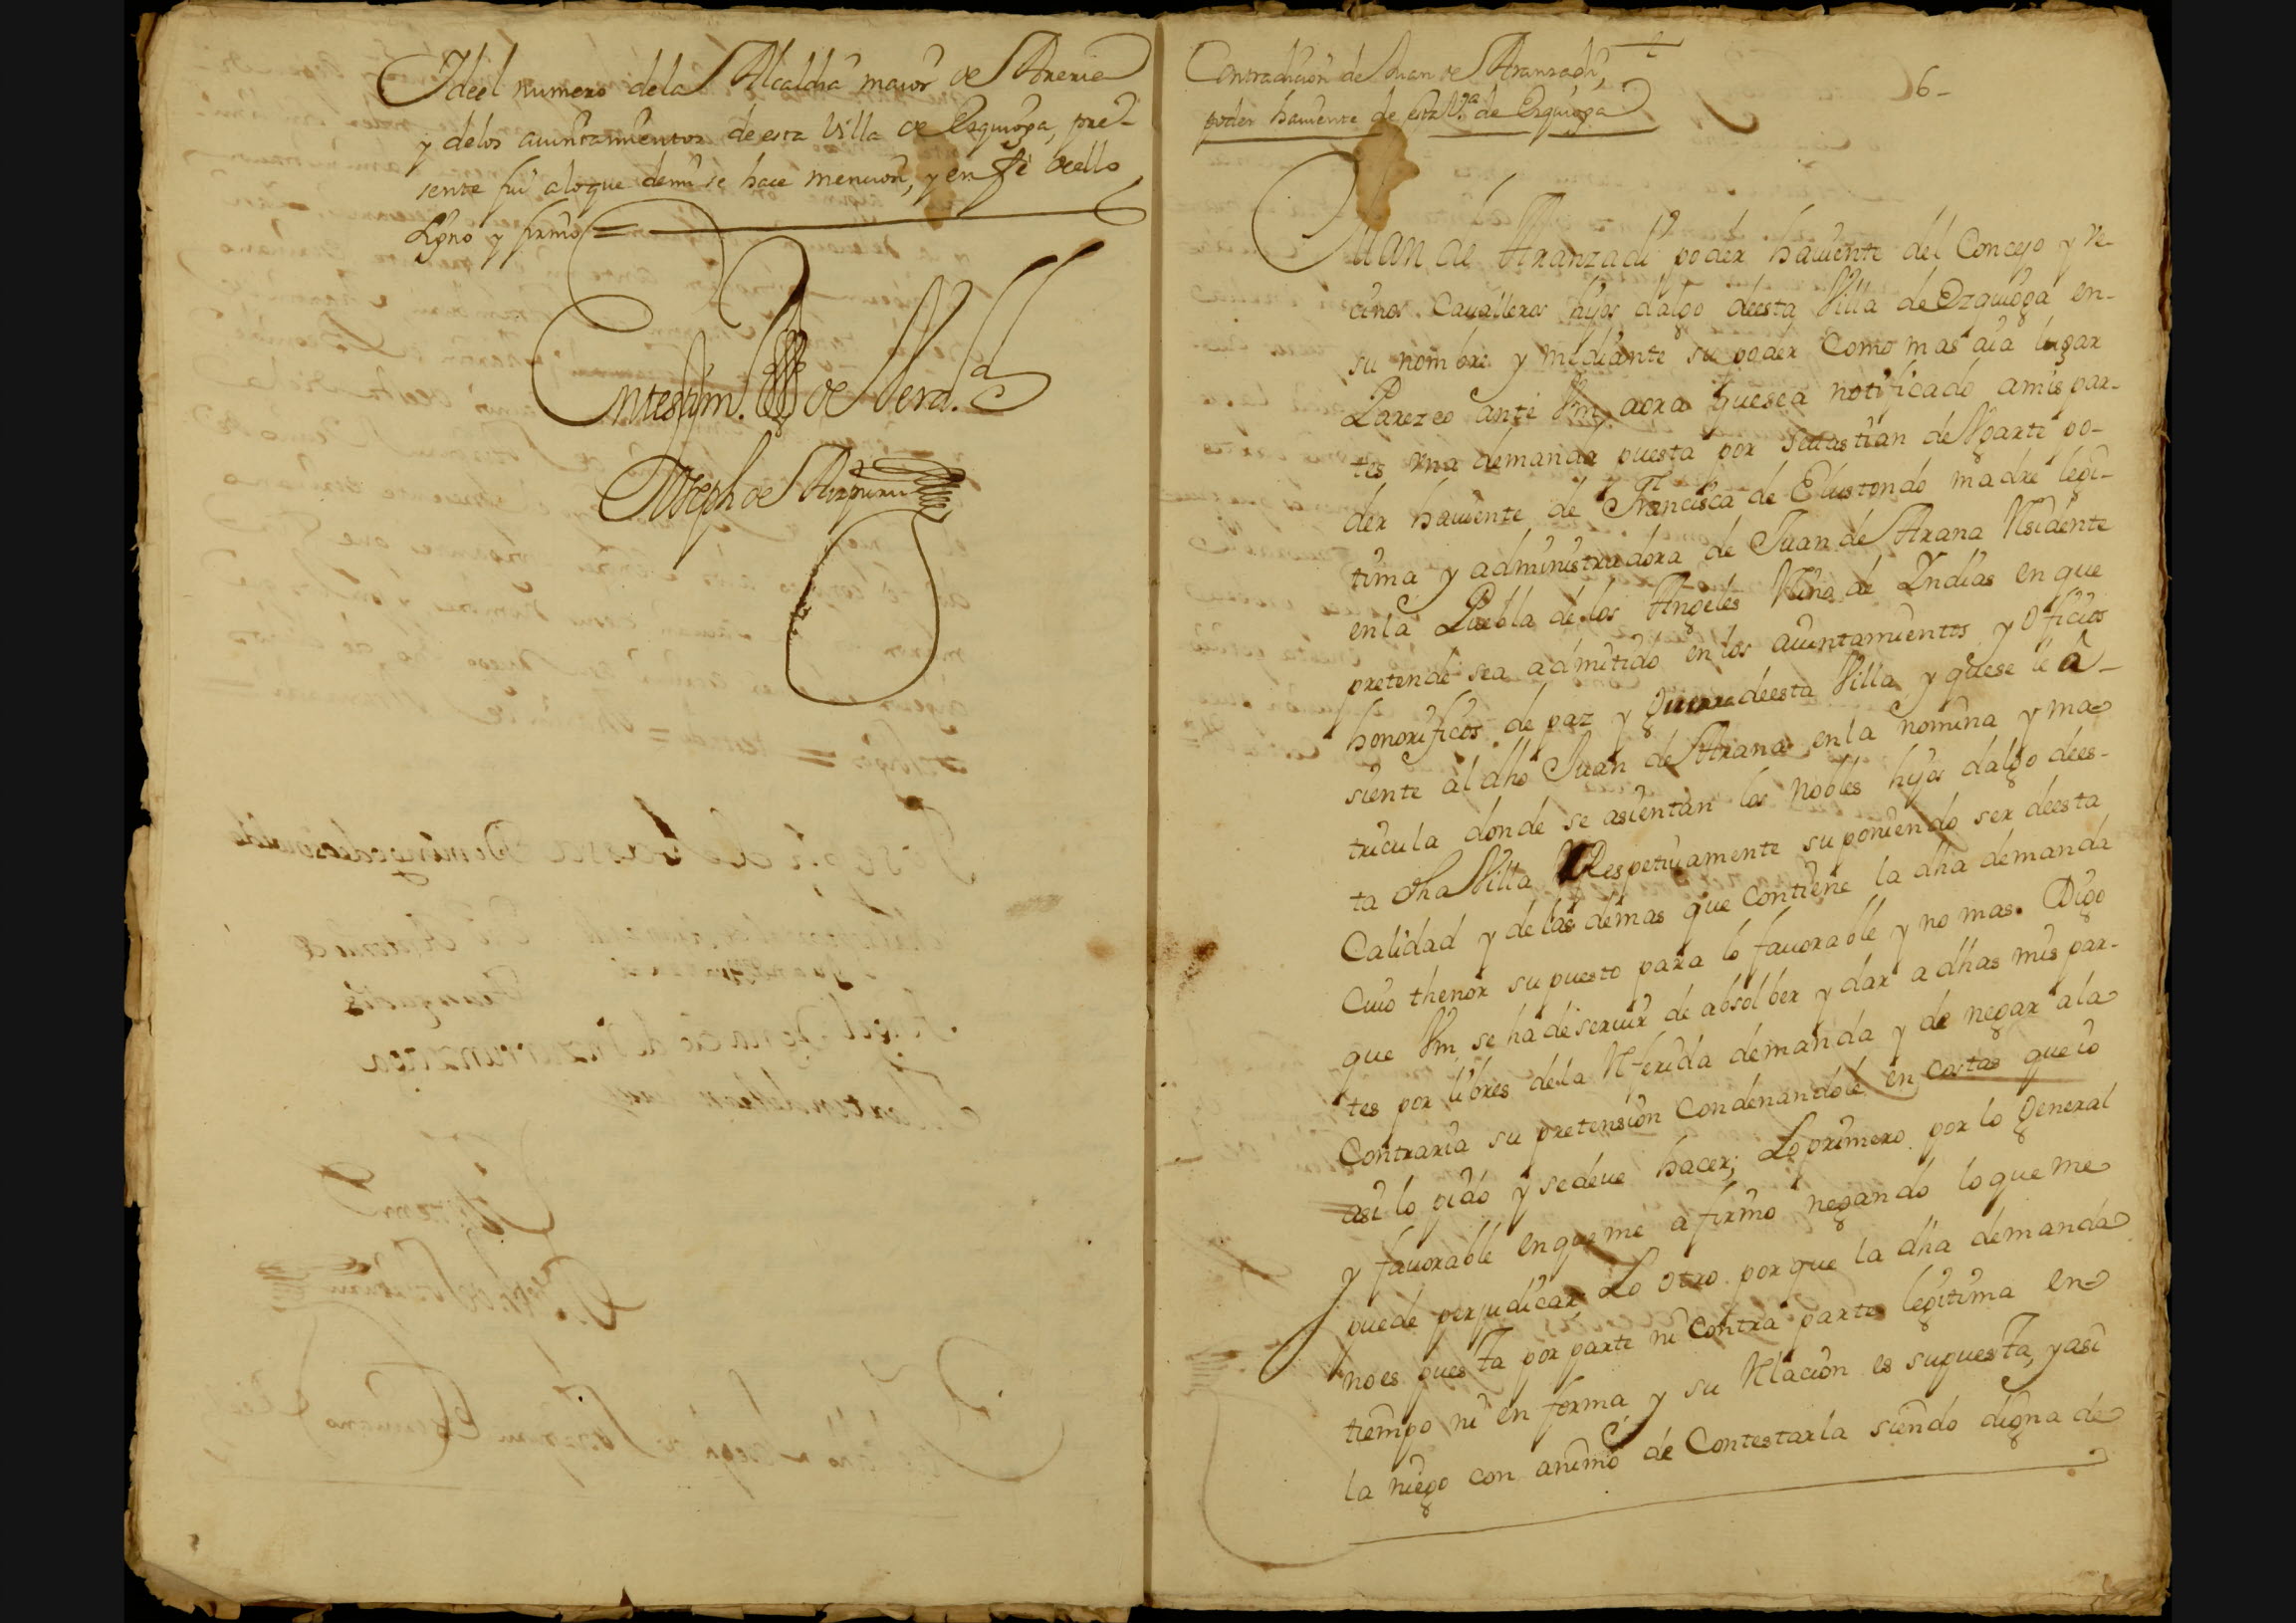 I del numero dela Alcaldia maior de Areria
y delos aiuntamientos de esta Villa de Ezquioga, pre-
sente fui alo que demi se hace mencion, y en fe de ello
signo y firmo =
Entestim.º de Verd.d
Joseph de Aizpuru
Contradicion de Juan de Aranzadi,
poder haviente de esta V.ª de Ezquioga
6-
Juan de Aranzadi poder haviente del Concejo y ve-
cinos Cavalleros hijos dalgo deesta Villa de Ezquioga en-
su nombre y mediante su poder Como mas aia lugar
Parezco ante Vm, aora quesea notificado amis par-
tes una demanda puesta por Sevastian de Ugarte po-
der haviente de Francisca de Elustondo madre legi-
tima y administradora de Juan de Arana Residente
enla Puebla de los Angeles Reino de Yndias en que
pretende sea admitido en los aiuntamientos y Oficios
honorificos de paz y Guerra deesta Villa y quese le a-
siente al dho Juan de Arana en la nomina y ma-
tricula donde se asientan los nobles hijos dalgo dees-
ta dha Villa Respetivamente suponiendo ser deesta
Calidad y de las demas que Contiene la dha demanda
Cuio thenor supuesto para lo favorable y no mas. Digo
que Vm, se ha deservir de absolber y dar a dhas mis par-
tes por libres dela Referida demanda y de negar ala
Contraria su pretension Condenandole en costas que io
asi lo pido y sedeve hacer; Lo primero por lo General
y favorable enqueme afirmo negando lo que me
puede perjudicar Lo otro porque la dha demanda
noes puesta por parte ni contra parte legitima en
tiempo ni en forma y su Relacion es supuesta, y asi
la niego con animo de Contestarla siendo digna de